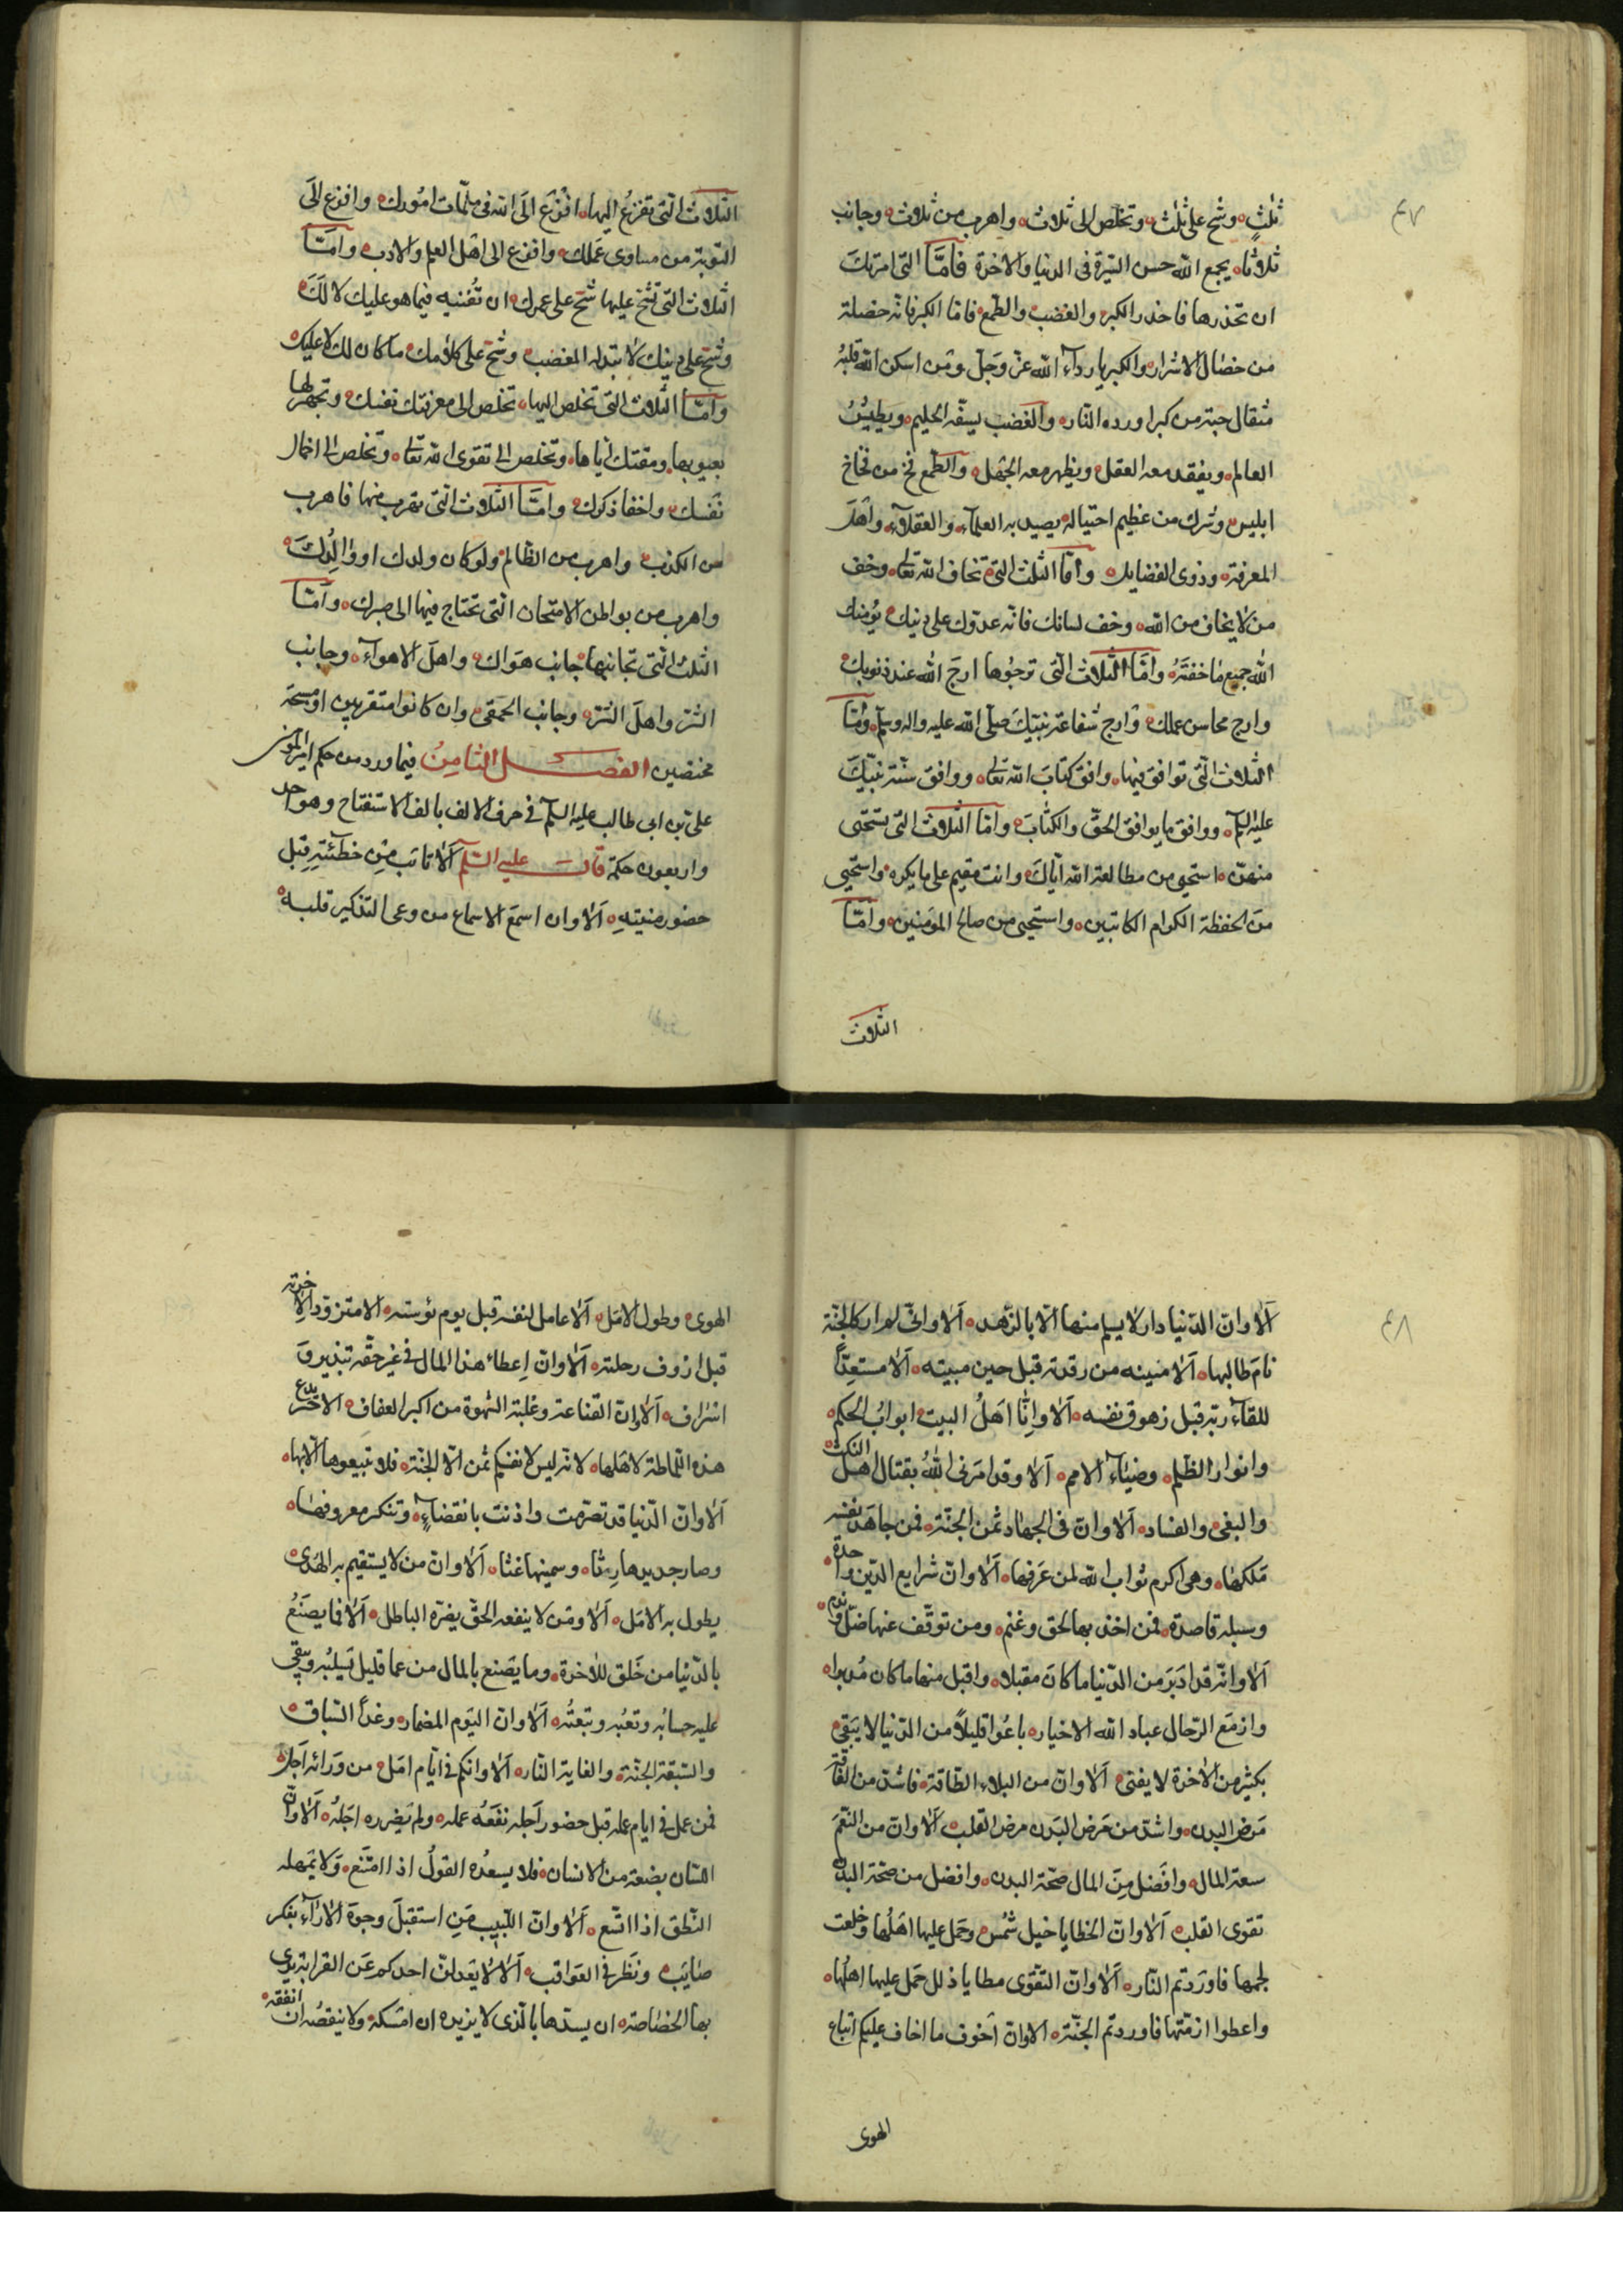 ثلثٍ وشح على ثلث وتخلص الى ثلاث واهرب من ثلاث وجانب
ثلاثا يجمع الله حسن السيرة فى الدنيا والاخرة فامّا التى امرتك
ان تحذرها فاحذر الكبر والغضب والطمع فامّا الكبر فانه خصلة
من خصال الاشرار والكبريا رداء الله عزّ وجلّ ومن اسكن الله قلبه
مثقال حبة من كبر اورده النار والغضب يسفّه الحليم ويطيش
العالم ويفقد معه العقل ويظهر معه الجهل والطمع فخ من فخاخ
ابليس وشرك من عظيم احتياله يصيد به العلماء والعقلاء واهل
المعرفة وذوى الفضايل وامّا الثلث التى تخاف الله تعالى وخف
من لا يخاف من الله وخف لسانك فانه عدوك على دينك يؤمنك
الله جميع ما خفته وامّا الثلاث التى ترجوها ارج الله عند ذنوبك
وارج محاسن عملك وارج شفاعة نبيك صلّى الله عليه واله وسلم وامّا
الثلاث التى توافق فيها وافق كتاب الله تعالى ووافق سنة نبيّك
عليه السلم ووافق ما يوافق الحقّ والكتاب وامّا الثلاث التى تستحيى
منهنّ استحيى من مطالعة الله اياك وانت مقيم على ما يكره واستحيى
من الحفظة الكرام الكاتبين واستحيى من صالح المؤمنين وامّا
الثلاث
٤٧
الثلاث التى تفزع اليها افزع الى الله فى ملمّات امورك وافزع الى
التوبة من مساوى عملك وافزع الى اهل العلم والادب وامّا
الثلاث التى تشح عليها شح على عمرك ان تفنيه فيما هو عليك لا لك
وشح على دينك لا تبذله المغضب وشح على كلامك ما كان لك لا عليك
وامّا الثلاث التى تخلص اليها تخلص الى معرفتك نفسك وتجهر لها
بعيوبها ومقتك اياها وتخلص الى تقوى الله تعالى وتخلص الى اخمال
نفسك واخفا ذكرك وامّا الثلاث التى تهرب منها فاهرب
من الكذب واهرب من الظالم ولو كان ولدك او والدك
واهرب من بواطن الامتحان التى تحتاج فيها الى صبرك وامّا
الثلث التى تجانبها جانب هواك واهل الاهواء وجانب
الشر واهل الشر وجانب الحمقى وان كانوا متقربين او مسحة
مختصين الفصل الثامن فيما ورد من حكم امير المؤمنين
على بن ابى طالب عليه السلم فى حرف الالف بالف الاستفتاح وهو احد
واربعون حكمة قال عليه السّلم الا تائب من خطيئته قبل
حضور منيته الا وان اسمع الاسماع من وعى التذكير قلبه
الا وانّ الدّنيا دار لا يسلم منها الّا بالزّهد الا وانّى لم ار كالجنّة
نام طالبها الا منتبه من رقدته قبل حين مبيته الا مستعدّا
للقاء ربّه قبل زهوق نفسه الا وانّا اهل البيت ابواب الحكم
وانوار الظلم وضياء الامم الا وقد امرنى الله بقتال اهل النكث
والبغى والفساد الا وانّ فى الجهاد ثمن الجنّة فمن جاهد نفسه
ملكها وهى اكرم ثواب الله لمن عرفها الا وانّ شرايع الدّين واحدة
وسبله قاصدة فمن اخذ بها لحق وغنم ومن توقّف عنها ضلّ وندم
الا وانّه قد ادبر من الدّنيا ما كان مقبلا واقبل منها ما كان مدبرا
وازمع الرّحال عباد الله الاخيار باعوا قليلاً من الدّنيا لا يبقى
بكثير من الاخرة لا يفنى الا وانّ من البلاء الفاقة فاشد من الفاقة
مرض البدن واشد من مرض البدن مرض القلب الا وانّ من النّعم
سعة المال وافضل من المال صحّة البدن وافضل من صحّة البدن
تقوى القلب الا وانّ الخطايا خيل شمس وحمل عليها اهلها وخلعت
لجمها فاوردتم النّار الا وانّ التقوى مطايا ذلل حمل عليها اهلها
واعطوا ازمّتها فاوردتم الجنّة الا وانّ اخوف ما اخاف عليكم اتباع
الهوى
٤٨
الهوى وطول الامل الا عامل لنفسه قبل يوم بؤسه الا متزوّد لاخرته
قبل ازوف رحلته الا وانّ اعطاء هذا المال فى غير حقّه تبذير و
اسراف الا وان القناعة وغلبة الشهوة من اكبر العفاف الا حرّ يدع
هذه اللماظة لاهلها لانّه ليس لانفسكم ثمن الّا الجنّة فلا تبيعوها الّا بها
الا وانّ الدّنيا قد تصرّمت واذنت بانقضاءٍ وتنكر معروفها
وصار جديدها رثّا وسمينها غثّا الا وانّ من لا يستقيم به الهدى
يطول به الامل الا ومن لا ينفعه الحقّ يضرّه الباطل الا فما يصنع
بالدّنيا من خلق للاخرة وما يصنع بالمال من عما قليل يسلبه ويبقى
عليه حسابه وتعبه وتبعته الا وانّ اليوم المضمار وغداً السّباق
والسّبقة الجنّة والغاية النّار الا وانكم فى ايّام امل من ورائه اجل
فمن عمل فى ايام عمله قبل حضور اجله نفعه عمله ولم يضرره اجله الا وانّ
اللسان بضعة من الانسان فلا يسعده القول اذا امتنع ولا يمهله
النّطق اذا اتّسع الا وانّ اللبيب من استقبل وجوه الاراء بفكر
صايب ونظر فى العواقب الا لا يعدلنّ احدكم عن القرابة يرى
بها الخصاصة ان يسدّها بالّذى لا يزيده ان امسكه ولا ينقصه ان انفقه